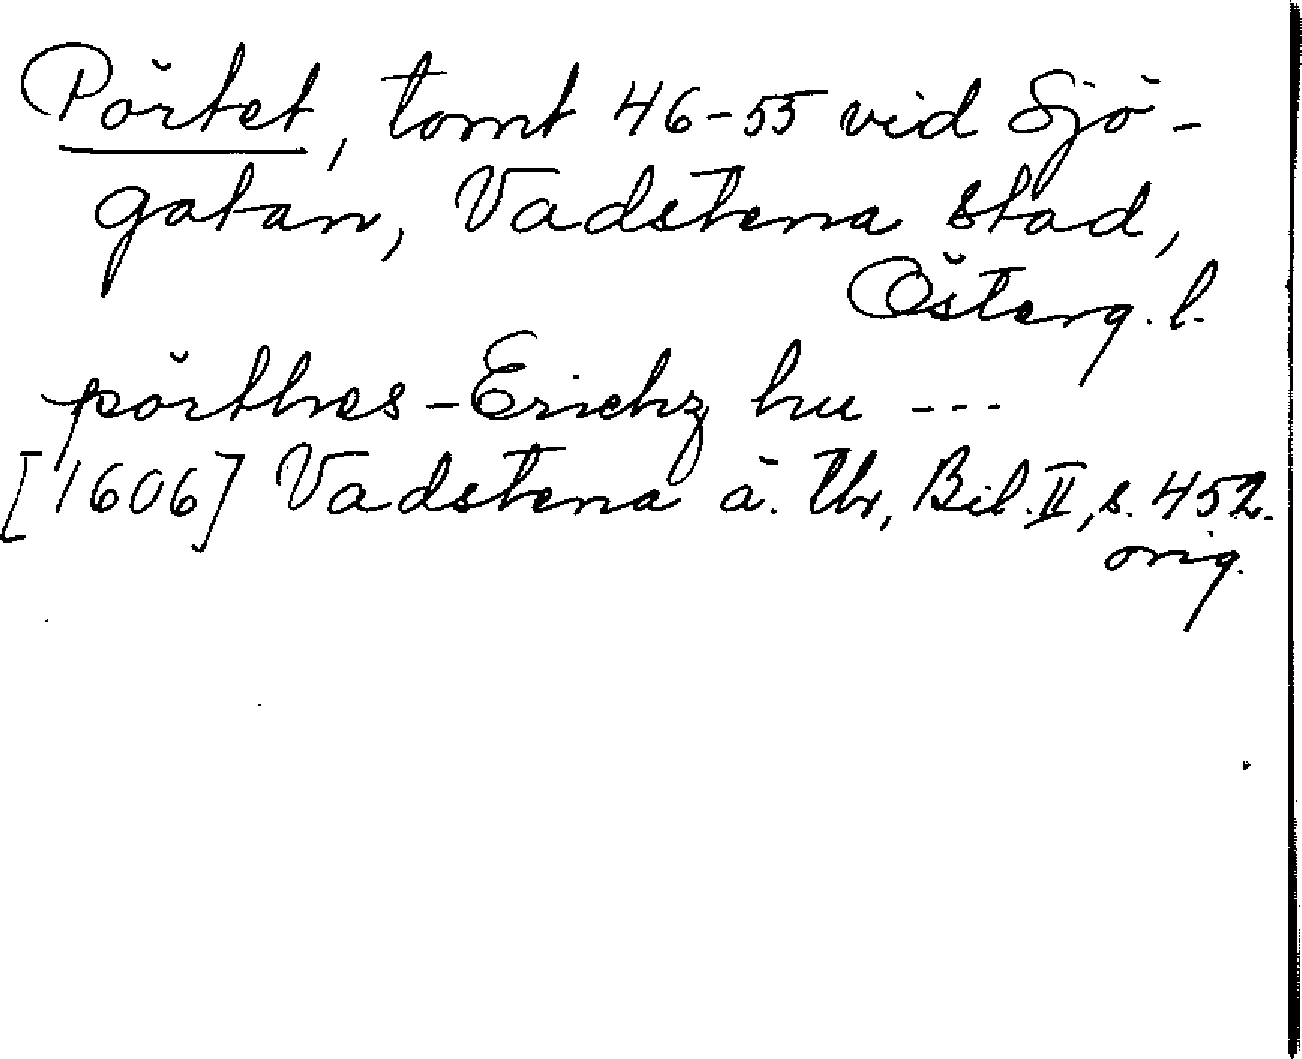 Pörtet, tomt 46-55 vid Sjö-
gatan, Vadstena stad,
Österg. l.
pörthes-Erichz hu ---
[1606] Vadstena ä. Tbr, Bil. II, s. 452.
orig.